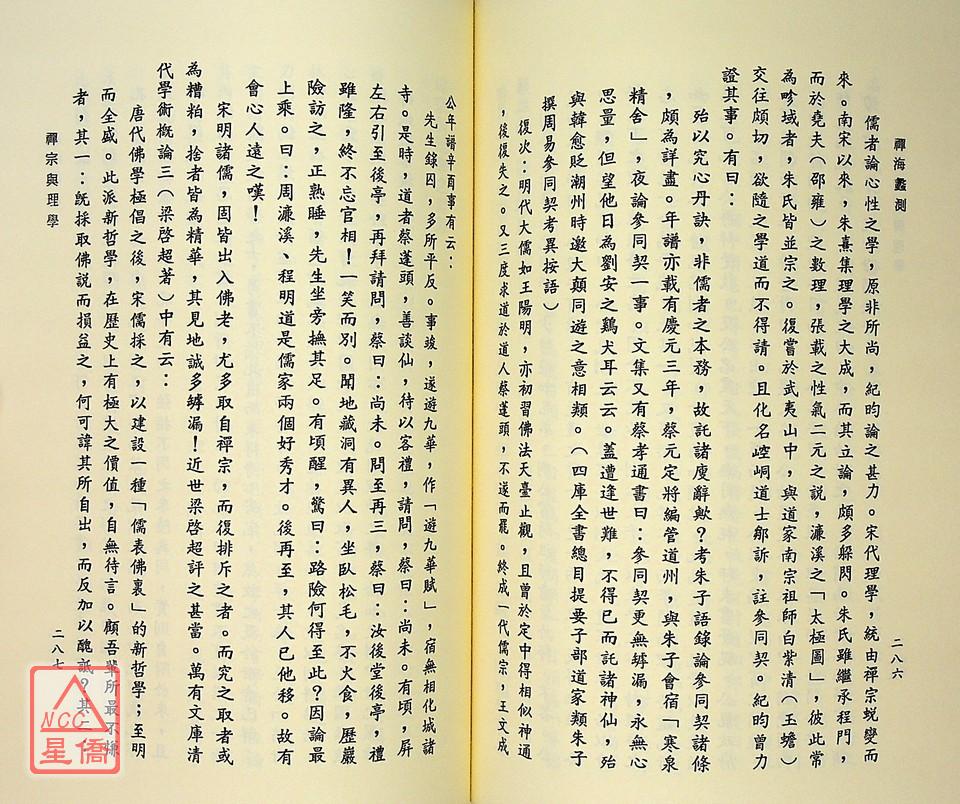 禪海蠡測
二八六
儒者論心性之學，原非所尚，紀昀論之甚力。宋代理學，統由禪宗蛻變而
來。南宋以來，朱熹集理學之大成，而其立論，頗多躲閃。朱氏雖繼承程門，
而於堯夫（邵雍）之數理，張載之性氣二元之説，濂溪之「太極圖」，彼此常
為畛域者，朱氏皆並宗之。復嘗於武夷山中，與道家南宗祖師白紫清（玉蟾）
交往頗切，欲隨之學道而不得請。且化名崆峒道士鄒訢，註參同契。紀昀曾力
證其事。有曰：
殆以究心丹訣，非儒者之本務，故託諸廋辭歟？考朱子語錄論參同契諸條
，頗為詳盡。年譜亦載有慶元三年，蔡元定將編管道州，與朱子會宿「寒泉
精舍」，夜論參同契一事。文集又有蔡孝通書曰：參同契更無罅漏，永無心
思量，但望他日為劉安之鷄犬耳云云。蓋遭逢世難，不得已而託諸神仙，殆
與韓愈貶潮州時邀大顛同遊之意相類。（四庫全書總目提要子部道家類朱子
撰周易參同契考異按語）
復次：明代大儒如王陽明，亦初習佛法天臺止觀，且曾於定中得相似神通
，後復失之。又三度求道於道人蔡蓬頭，不遂而罷。終成一代儒宗，王文成
公年譜辛酉事有云：
先生錄囚，多所平反。事竣，遂遊九華，作「遊九華賦」，宿無相化城諸
寺。是時，道者蔡蓬頭，善談仙，待以客禮，請問，蔡曰：尚未。有頃，屏
左右引至後亭，再拜請問，蔡曰：尚未。問至再三，蔡曰：汝後堂後亭，禮
雖隆，終不忘官相！一笑而別。聞地藏洞有異人，坐臥松毛，不火食，歷巖
險訪之，正熟睡，先生坐旁撫其足。有頃醒，驚曰：路險何得至此？因論最
上乘。曰：周濂溪、程明道是儒家兩個好秀才。後再至，其人已他移。故有
會心人遠之嘆！
宋明諸儒，固皆出入佛老，尤多取自禪宗，而復排斥之者。而究之取者或
為糟粕，捨者皆為精華，其見地誠多罅漏！近世梁啓超評之甚當。萬有文庫清
代學術概論三（梁啓超著）中有云：
唐代佛學極倡之後，宋儒採之，以建設一種「儒表佛裏」的新哲學；至明
而全盛。此派新哲學，在歷史上有極大之價值，自無待言。顧吾輩所最不慊
者，其一：旣採取佛説而損益之，何可諱其所自出，而反加以醜詆？其二，
禪宗與理學
二八七
NCC
星僑